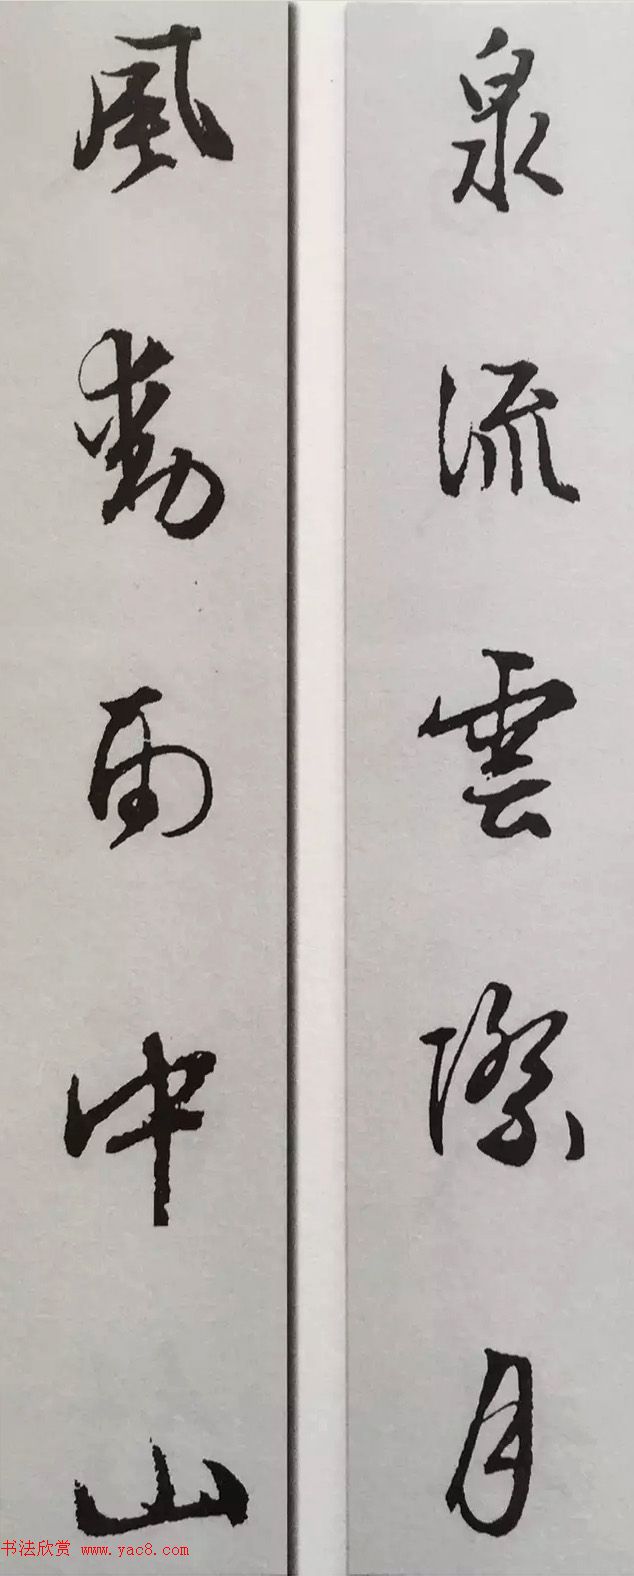 泉流雲際月
風動雨中山
书法欣赏 www.yac8.com